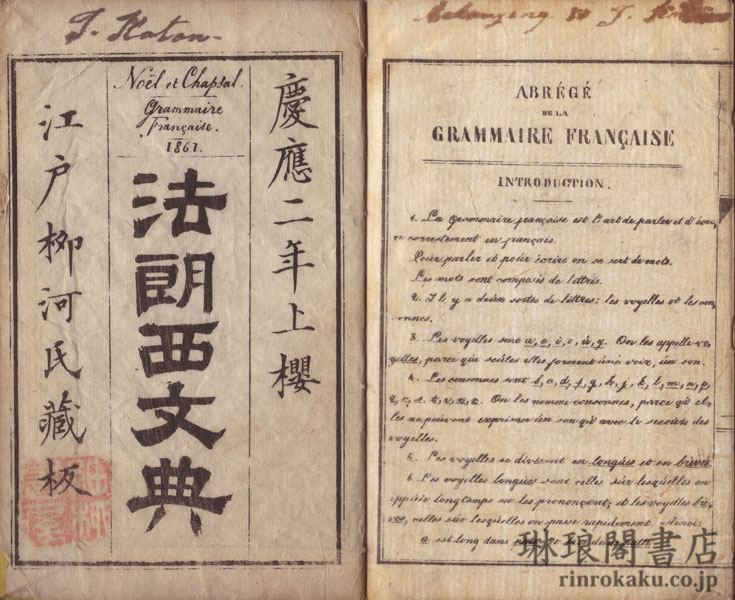 J. Katon
慶應二年上櫻
Noël et Chapsal.
Grammaire
Française.
1861.
法朗西文典
江戸柳河氏藏板
Belonging to J.
ABRÉGÉ
DE LA
GRAMMAIRE FRANÇAISE
INTRODUCTION.
1. La Grammaire française est l'art de parler et d'écri-
re correctement en français.
Pour parler et pour écrire on se sert de mots.
Les mots sont composés de lettres.
2. Il y a deux sortes de lettres: les voyelles et les con-
nes.
3. Les voyelles sont a, e, i, o, u, y. On les appelle vo-
yelles, parce que seules elles forment une voix, un son.
4. Les consonnes sont b, c, d, f, g, h, j, k, l, m, n, p,
q, r, s, t, v, x, z. On les nomme consonnes, parce qu'el-
les ne peuvent exprimer un son qu'avec le secours des
voyelles.
5. Les voyelles se divisent en longues et en brèves.
6. Les voyelles longues sont celles sur lesquelles on
appuie longtemps en les prononçant; et les voyelles brè-
ves, celles sur lesquelles on passe rapidement. Ainsi:
a est long dans
琳琅閣書店
rinrokaku.co.jp